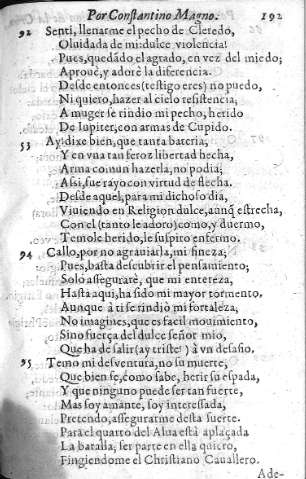 Por Constantino Magno. 192
92 Senti, llenarme el pecho de Cletedo,
Oluidada de mi: dulce violencia!
Pues, quedádo el agrado, en vez del miedo;
Aprouè, y adorè la diferencia.
Desde entonces (testigo eres) no puedo,
Ni quiero, hazer al cielo resistencia,
A muger se rindio mi pecho, herido
De Iupiter, con armas de Cupido.
53 Ay! dixe bien, que tanta bateria,
Y en vna tan feroz libertad hecha,
Arma comun hazerla, no podia;
Assi, fue rayo con virtud de flecha.
Desde aquel, para mi dichoso dia,
Viuiendo en Religion dulce, aunq̃ estrecha,
Con el (tanto le adoro) como, y duermo,
Temole herido, le suspiro enfermo.
94 Callo, por no agrauiarla, mi fineza;
Pues, basta descubrir el pensamiento;
Solo assegurarè, que mi entereza,
Hasta aqui, ha sido mi mayor tormento.
Aunque à ti se rindiò mi fortaleza,
No imagines, que es facil mouimiento,
Sino fuerça del dulce señor mio,
Que ha de salir (ay triste!) à vn desafio.
95 Temo mi desventura, no su muerte,
Que bien se, como sabe, herir su espada,
Y que ninguno puede ser tan fuerte,
Mas soy amante, soy interessada,
Pretendo, assegurarme desta suerte.
Para el quarto del Alua està aplaçada
La batalla; ser parte en ella quiero,
Fingiendome el Christiano Cauallero.
Ade-